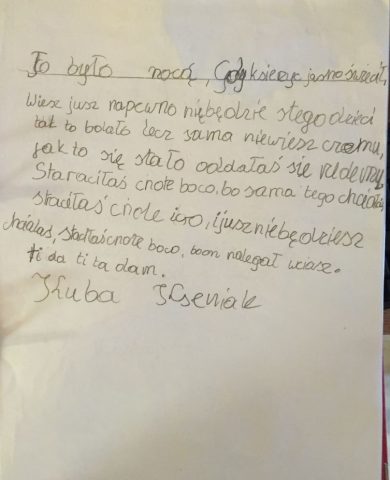 To było nocą, Gdy księżyc jasno świecił,
Wiesz jusz napewno niębędzie stego dzieci
tak to bolało lecz sama niewiesz czemu,
jak to się stało oddałaś się
Staraciłaś cnote boco, bo sama tego chciałaś
staciłaś cnote ico, ijusz niębędziesz
chciałaś, stadłaś cnote boco, boon nalegał wciasz.
ti da ti ta dam.
Kuba Kseniak